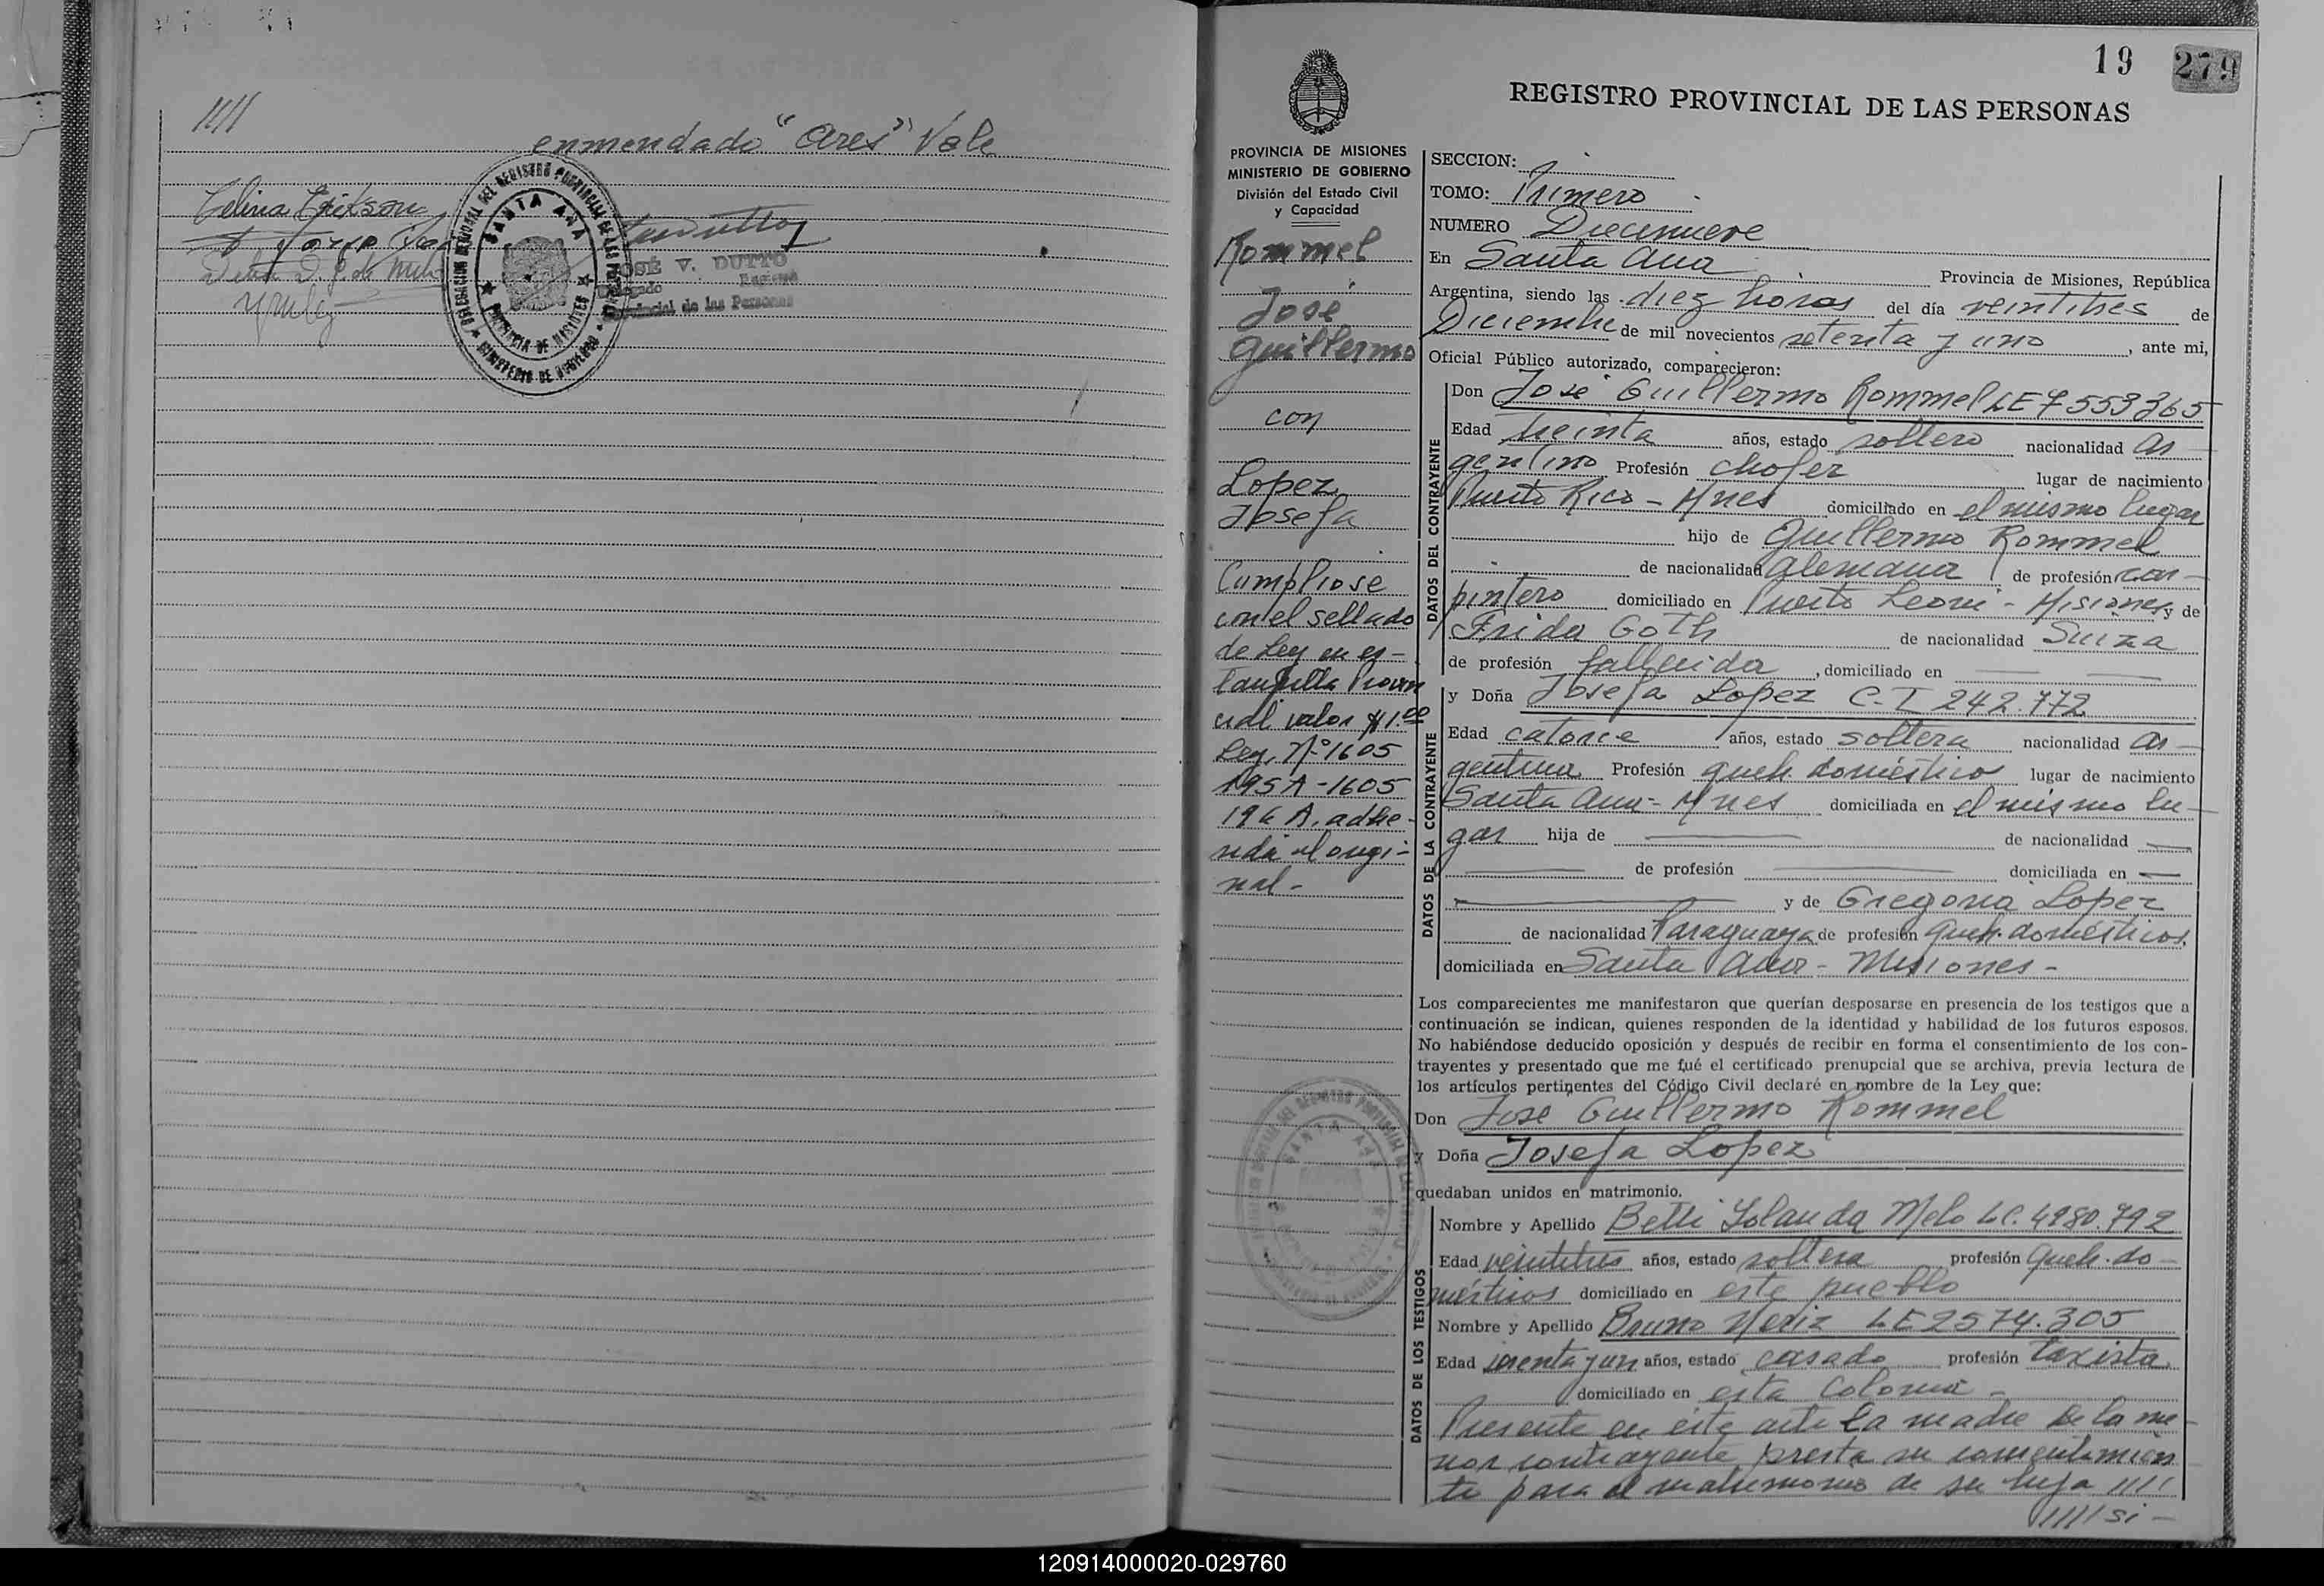 ////
enmendado "Ares" Vale
Celina
JOSÉ V. DUTTO
Delegado Regional
Provincial de las Personas
DELEGACION REGIONAL DEL REGISTRO PROVINCIAL DE LAS PERSONAS
SANTA ANA
PROVINCIA DE MISIONES
MINISTERIO DE GOBIERNO
19 279
REGISTRO PROVINCIAL DE LAS PERSONAS
PROVINCIA DE MISIONES
MINISTERIO DE GOBIERNO
División del Estado Civil
y Capacidad
Rommel
José
Guillermo
con
Lopez
Josefa
Cumpliose
con el sellado
de Ley en es-
tampilla Provin
cial valor $1.00
Ley. Nº 1605
195 A - 1605
196 A. adhe-
rida al origi-
nal -
SECCION:
TOMO: Primero
NUMERO Diecinueve
En Santa Ana Provincia de Misiones, República
Argentina, siendo las diez horas del día veintitres de
Diciembre de mil novecientos setenta y uno, ante mi,
Oficial Público autorizado, comparecieron:
DATOS DEL CONTRAYENTE
Don José Guillermo Rommel LE 7553365
Edad treinta años, estado soltero nacionalidad ar-
gentino Profesión chofer lugar de nacimiento
Puerto Rico - Mnes domiciliado en el mismo lugar
hijo de Guillermo Rommel
de nacionalidad alemana de profesión car-
pintero domiciliado en Puerto Leoni - Misiones y de
Frida Goth de nacionalidad Suiza
de profesión fallecida, domiciliado en
DATOS DE LA CONTRAYENTE
y Doña Josefa Lopez C.I 242.772
Edad catorce años, estado soltera nacionalidad ar-
gentina Profesión queh. doméstico lugar de nacimiento
Santa Ana - Mnes domiciliada en el mismo lu-
gar hija de de nacionalidad
de profesión domiciliada en
y de Gregoria Lopez
de nacionalidad Paraguaya de profesión queh. domésticos.
domiciliada en Santa Ana - Misiones -
Los comparecientes me manifestaron que querían desposarse en presencia de los testigos que a
continuación se indican, quienes responden de la identidad y habilidad de los futuros esposos.
No habiéndose deducido oposición y después de recibir en forma el consentimiento de los con-
trayentes y presentado que me fué el certificado prenupcial que se archiva, previa lectura de
los artículos pertinentes del Código Civil declaré en nombre de la Ley que:
Don José Guillermo Rommel
y Doña Josefa Lopez
quedaban unidos en matrimonio.
DATOS DE LOS TESTIGOS
Nombre y Apellido Betti Yolanda Melo LC. 4980.792
Edad veintitres años, estado soltera profesión queh. do-
mésticos domiciliado en este pueblo
Nombre y Apellido Bruno LE 2574.305
Edad años, estado casado profesión taxista
domiciliado en esta Colonia -
Presente en este acto la madre de la me-
nor contrayente presta su consentimien
to para el matrimonio de su hija ////
//// si -
120914000020-029760